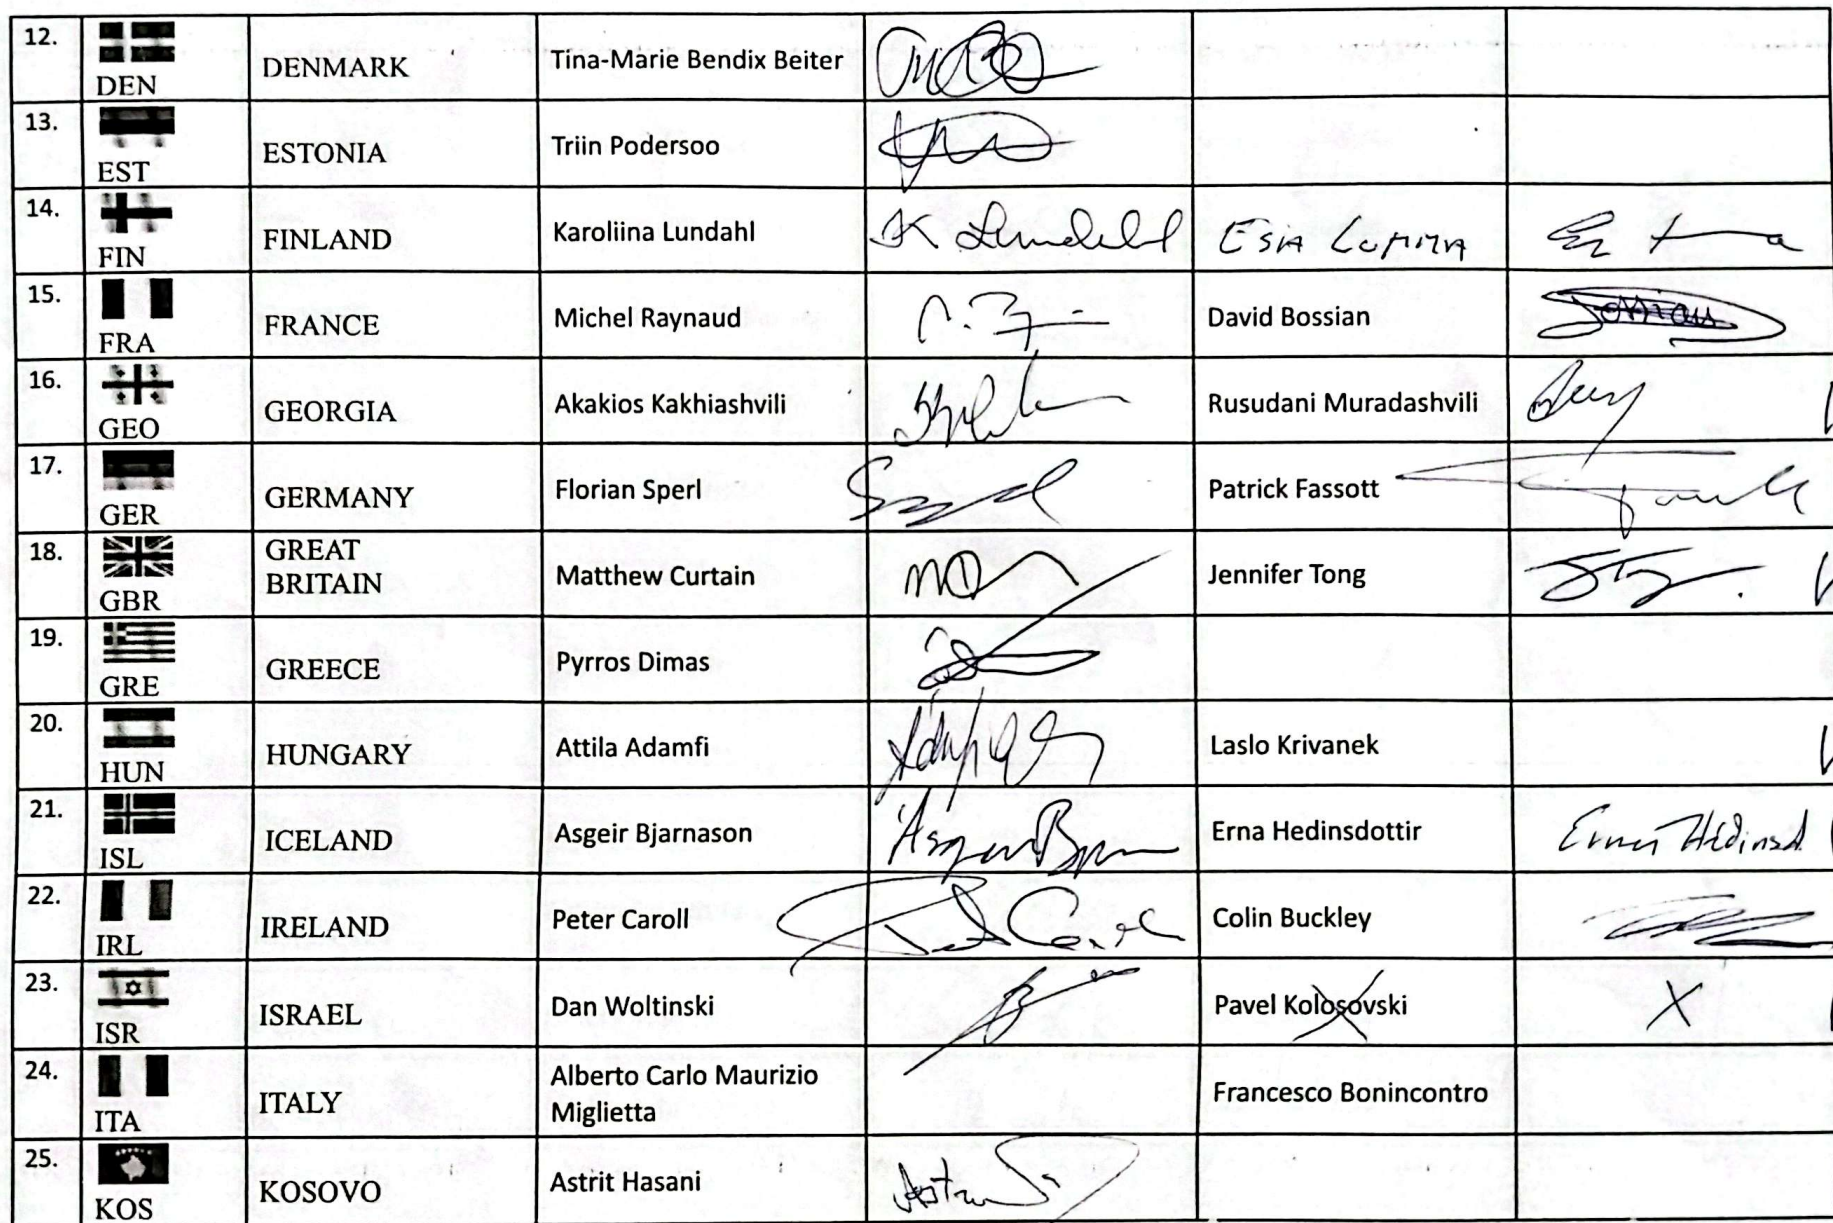 12. DEN DENMARK Tina-Marie Bendix Beiter
13. EST ESTONIA Triin Podersoo
14. FIN FINLAND Karoliina Lundahl K Lundahl ESA
15. FRA FRANCE Michel Raynaud David Bossian
16. GEO GEORGIA Akakios Kakhiashvili Rusudani Muradashvili
17. GER GERMANY Florian Sperl Patrick Fassott
18. GBR GREAT
BRITAIN Matthew Curtain Jennifer Tong
19. GRE GREECE Pyrros Dimas
20. HUN HUNGARY Attila Adamfi Laslo Krivanek
21. ISL ICELAND Asgeir Bjarnason Erna Hedinsdottir
22. IRL IRELAND Peter Caroll Colin Buckley
23. ISR ISRAEL Dan Woltinski Pavel Kolosovski X
24. ITA ITALY Alberto Carlo Maurizio
Miglietta Francesco Bonincontro
25. KOS KOSOVO Astrit Hasani